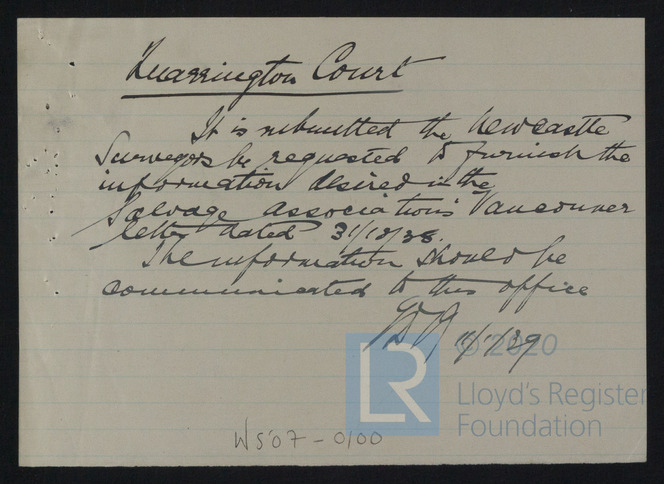 Quarrington Court
It is submitted the Newcastle
Surveyors be requested to furnish the
information desired in the
Salvage Association's Vancouver
letter dated 31/12/28.
The information should be
communicated to this office
11/1/29
© 2020
LR
Lloyd's Register
Foundation
WS07-0100